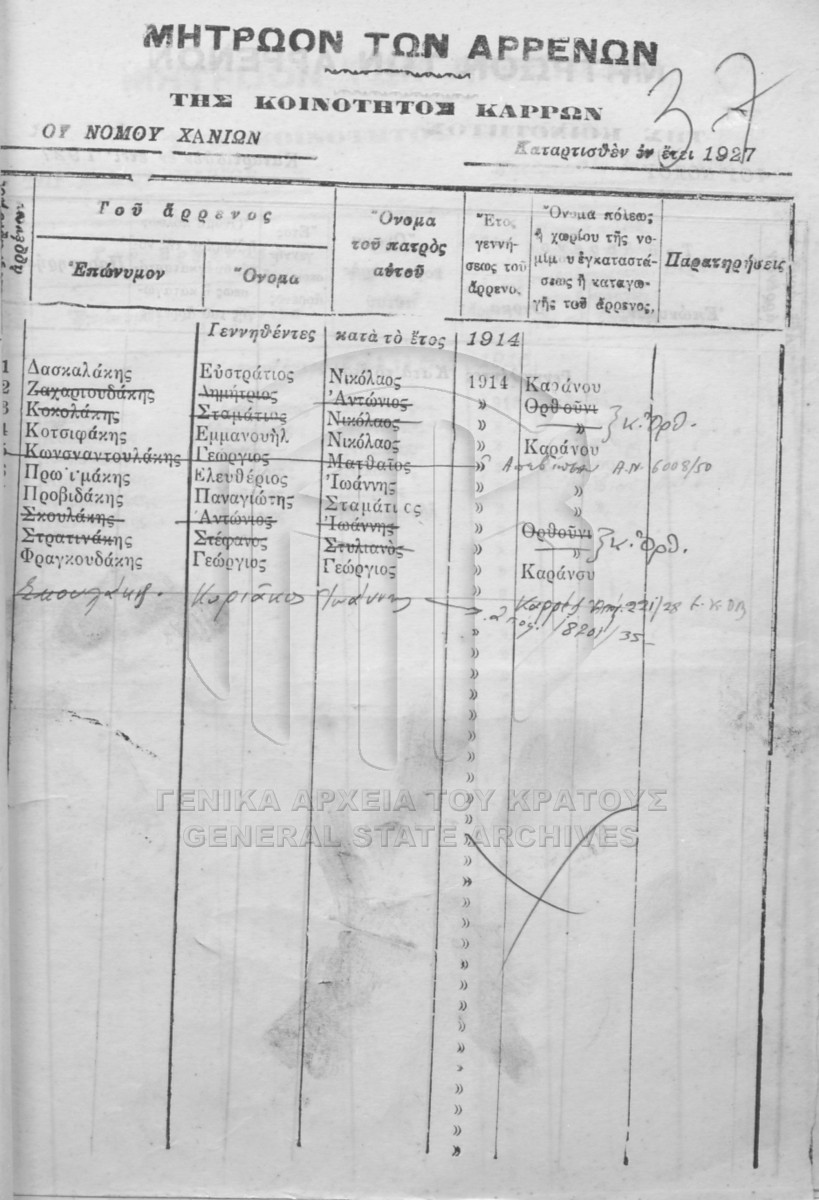 ΜΗΤΡΩΟΝ ΤΩΝ ΑΡΡΕΝΩΝ
37
ΤΗΣ ΚΟΙΝΟΤΗΤΟΣ ΚΑΡΡΩΝ
ΟΥ ΝΟΜΟΥ ΧΑΝΙΩΝ Καταρτισθὲν ἐν ἔτει 1927
Τοῦ ἄρρενος
Ἐπώνυμον
Ὄνομα
Ὄνομα
τοῦ πατρὸς
αὐτοῦ
Ἔτος
γεννή
σεως τοῦ
ἄρρενο.
Ὄνομα πόλεως
ἢ χωρίου τῆς νο
μίμ υ ἐγκαταστά
σεως ἢ καταγω
γῆς τοῦ ἄρρενος.
Παρατηρήσεις
Γεννηθέντες κατὰ τὸ ἔτος 1914
1 Δασκαλάκης Εὐστράτιος Νικόλαος 1914 Καράνου
2 Ζαχαριουδάκης Δημήτριος Ἀντώνιος » Ὀρθοῦνι
3 Κοκολάκης Σταμάτιος Νικόλαος » » κ. Ὀρθ.
4 Κοτσιφάκης Εμμανουὴλ Νικόλαος » Καράνου
5 Κωνσναντουλάκης Γεώργιος Ματθαῖος » Α.Ν. 6008/50
Πρω ιμάκης Ἐλευθέριος Ἰωάννης » »
Προβιδάκης Παναγιώτης Σταμάτι ς » »
Σκουλάκης Ἀντώνιος Ἰωάννης » Ὀρθοῦνι
Στρατινάκης Στέφανος Στυλιανὸς » » κ. Ὀρθ.
Φραγκουδάκης Γεώργιος Γεώργιος » Καράνσυ
Σκουλάκης. Κυριᾶκος Ἰωάννης 221/28
8201/35
ΓΕΝΙΚΑ ΑΡΧΕΙΑ ΤΟΥ ΚΡΑΤΟΥΣ
GENERAL STATE ARCHIVES